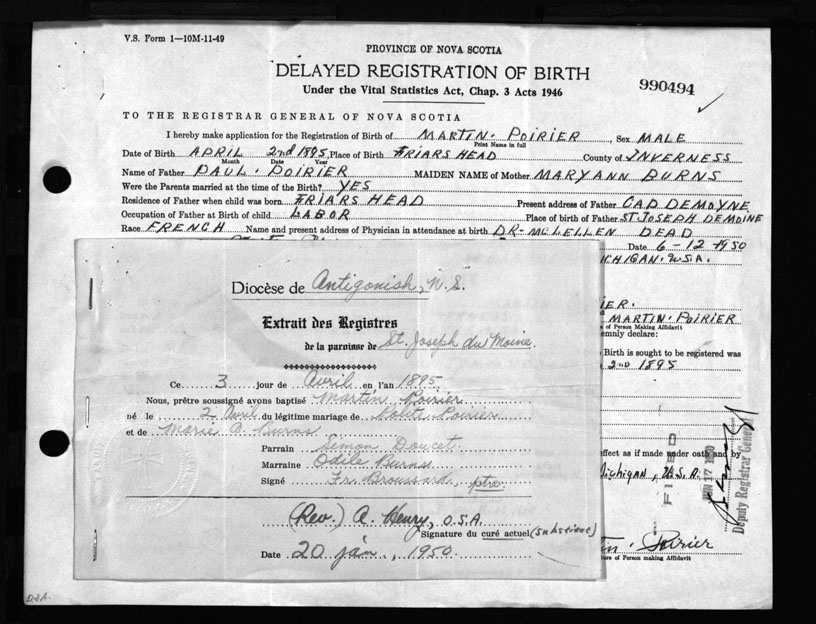 V.S. Form 1—10M-11-49
PROVINCE OF NOVA SCOTIA
DELAYED REGISTRATION OF BIRTH
Under the Vital Statistics Act, Chap. 3 Acts 1946
990494
TO THE REGISTRAR GENERAL OF NOVA SCOTIA
I hereby make application for the Registration of Birth of MARTIN. POIRIER, Sex MALE
Print Name in full
Date of Birth APRIL 2nd 1895, Place of Birth FRIARS HEAD County of INVERNESS
Month Date Year
Name of Father PAUL. POIRIER MAIDEN NAME of Mother MARYANN BURNS
Were the Parents married at the time of the Birth? YES
Residence of Father when child was born FRIARS HEAD Present address of Father CAD DEMOYNE
Occupation of Father at Birth of child LABOR Place of birth of Father ST JOSEPH DEMOINE
Race FRENCH Name and present address of Physician in attendance at birth DR- MCLELLEN DEAD
Date 6-12-1950
ICHIGAN. U.S.A.
IER.
MARTIN. POIRIER
e of Person Making Affidavit
emnly declare:
Birth is sought to be registered was
2nd 1895
effect as if made under oath and by
Michigan, U.S.A.
FILED
Deputy Registrar Gener
tin. Poirier
re of Person making Affidavit
Diocèse de Antigonish, N.S.
Extrait des Registres
de la paroisse de St. Joseph du Moine.
Ce 3 jour de Avril en l'an 1895
Nous, prêtre soussigné avons baptisé Martin Poirier
né le 2 Avril du légitime mariage de Poirier
et de Marie A. Burns
Parrain Simon Doucet
Marraine Odile Burns
Signé Fr. Broussard, ptre.
(Rev.) A. Henry, O.S.A.
Signature du curé actuel
Date 20 jan., 1950.